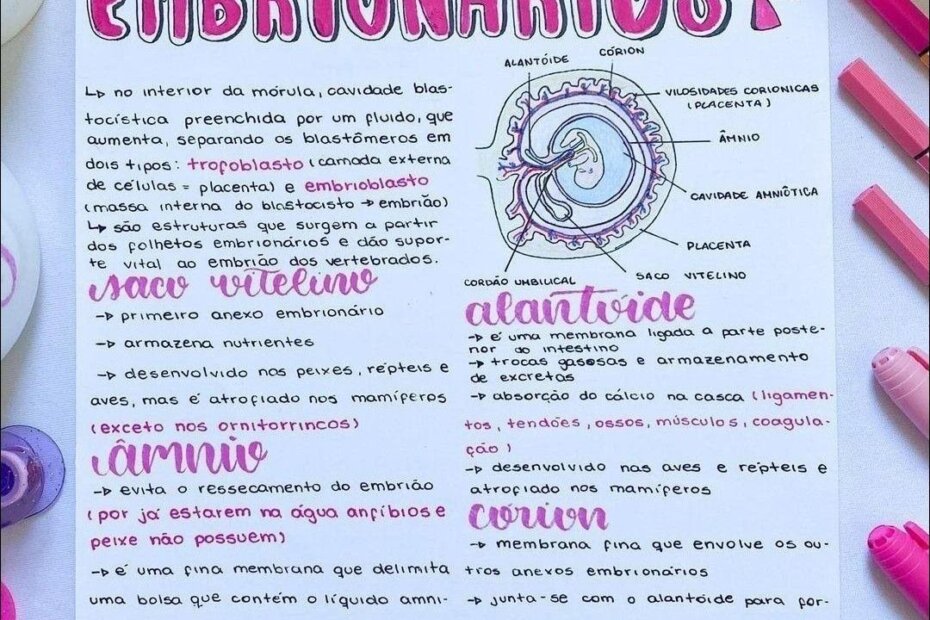 EMBRIONÁRIOS
↳ no interior da mórula, cavidade blas-
tocística preenchida por um fluido, que
aumenta, separando os blastômeros em
dois tipos: trofoblasto (camada externa
de células = placenta) e embrioblasto
(massa interna do blastocisto → embrião)
↳ são estruturas que surgem a partir
dos folhetos embrionários e dão supor-
te vital ao embrião dos vertebrados.
saco vitelino
→ primeiro anexo embrionário
→ armazena nutrientes
→ desenvolvido nos peixes, répteis e
aves, mas é atrofiado nos mamíferos
(exceto nos ornitorrincos)
âmnio
→ evita o ressecamento do embrião
(por já estarem na água anfíbios e
peixe não possuem)
→ é uma fina membrana que delimita
uma bolsa que contém o líquido amni-
ALANTÓIDE
CÓRION
VILOSIDADES CORIONICAS
(PLACENTA)
ÂMNIO
CAVIDADE AMNIÓTICA
PLACENTA
SACO VITELINO
CORDÃO UMBILICAL
alantóide
→ é uma membrana ligada a parte poste-
rior do intestino
→ trocas gasosas e armazenamento
de excretas
→ absorção do cálcio na casca (ligamen-
tos, tendões, ossos, músculos, coagula-
ção)
→ desenvolvido nas aves e répteis e
atrofiado nos mamíferos
córion
→ membrana fina que envolve os ou-
tros anexos embrionários
→ junta-se com o alantoide para for-